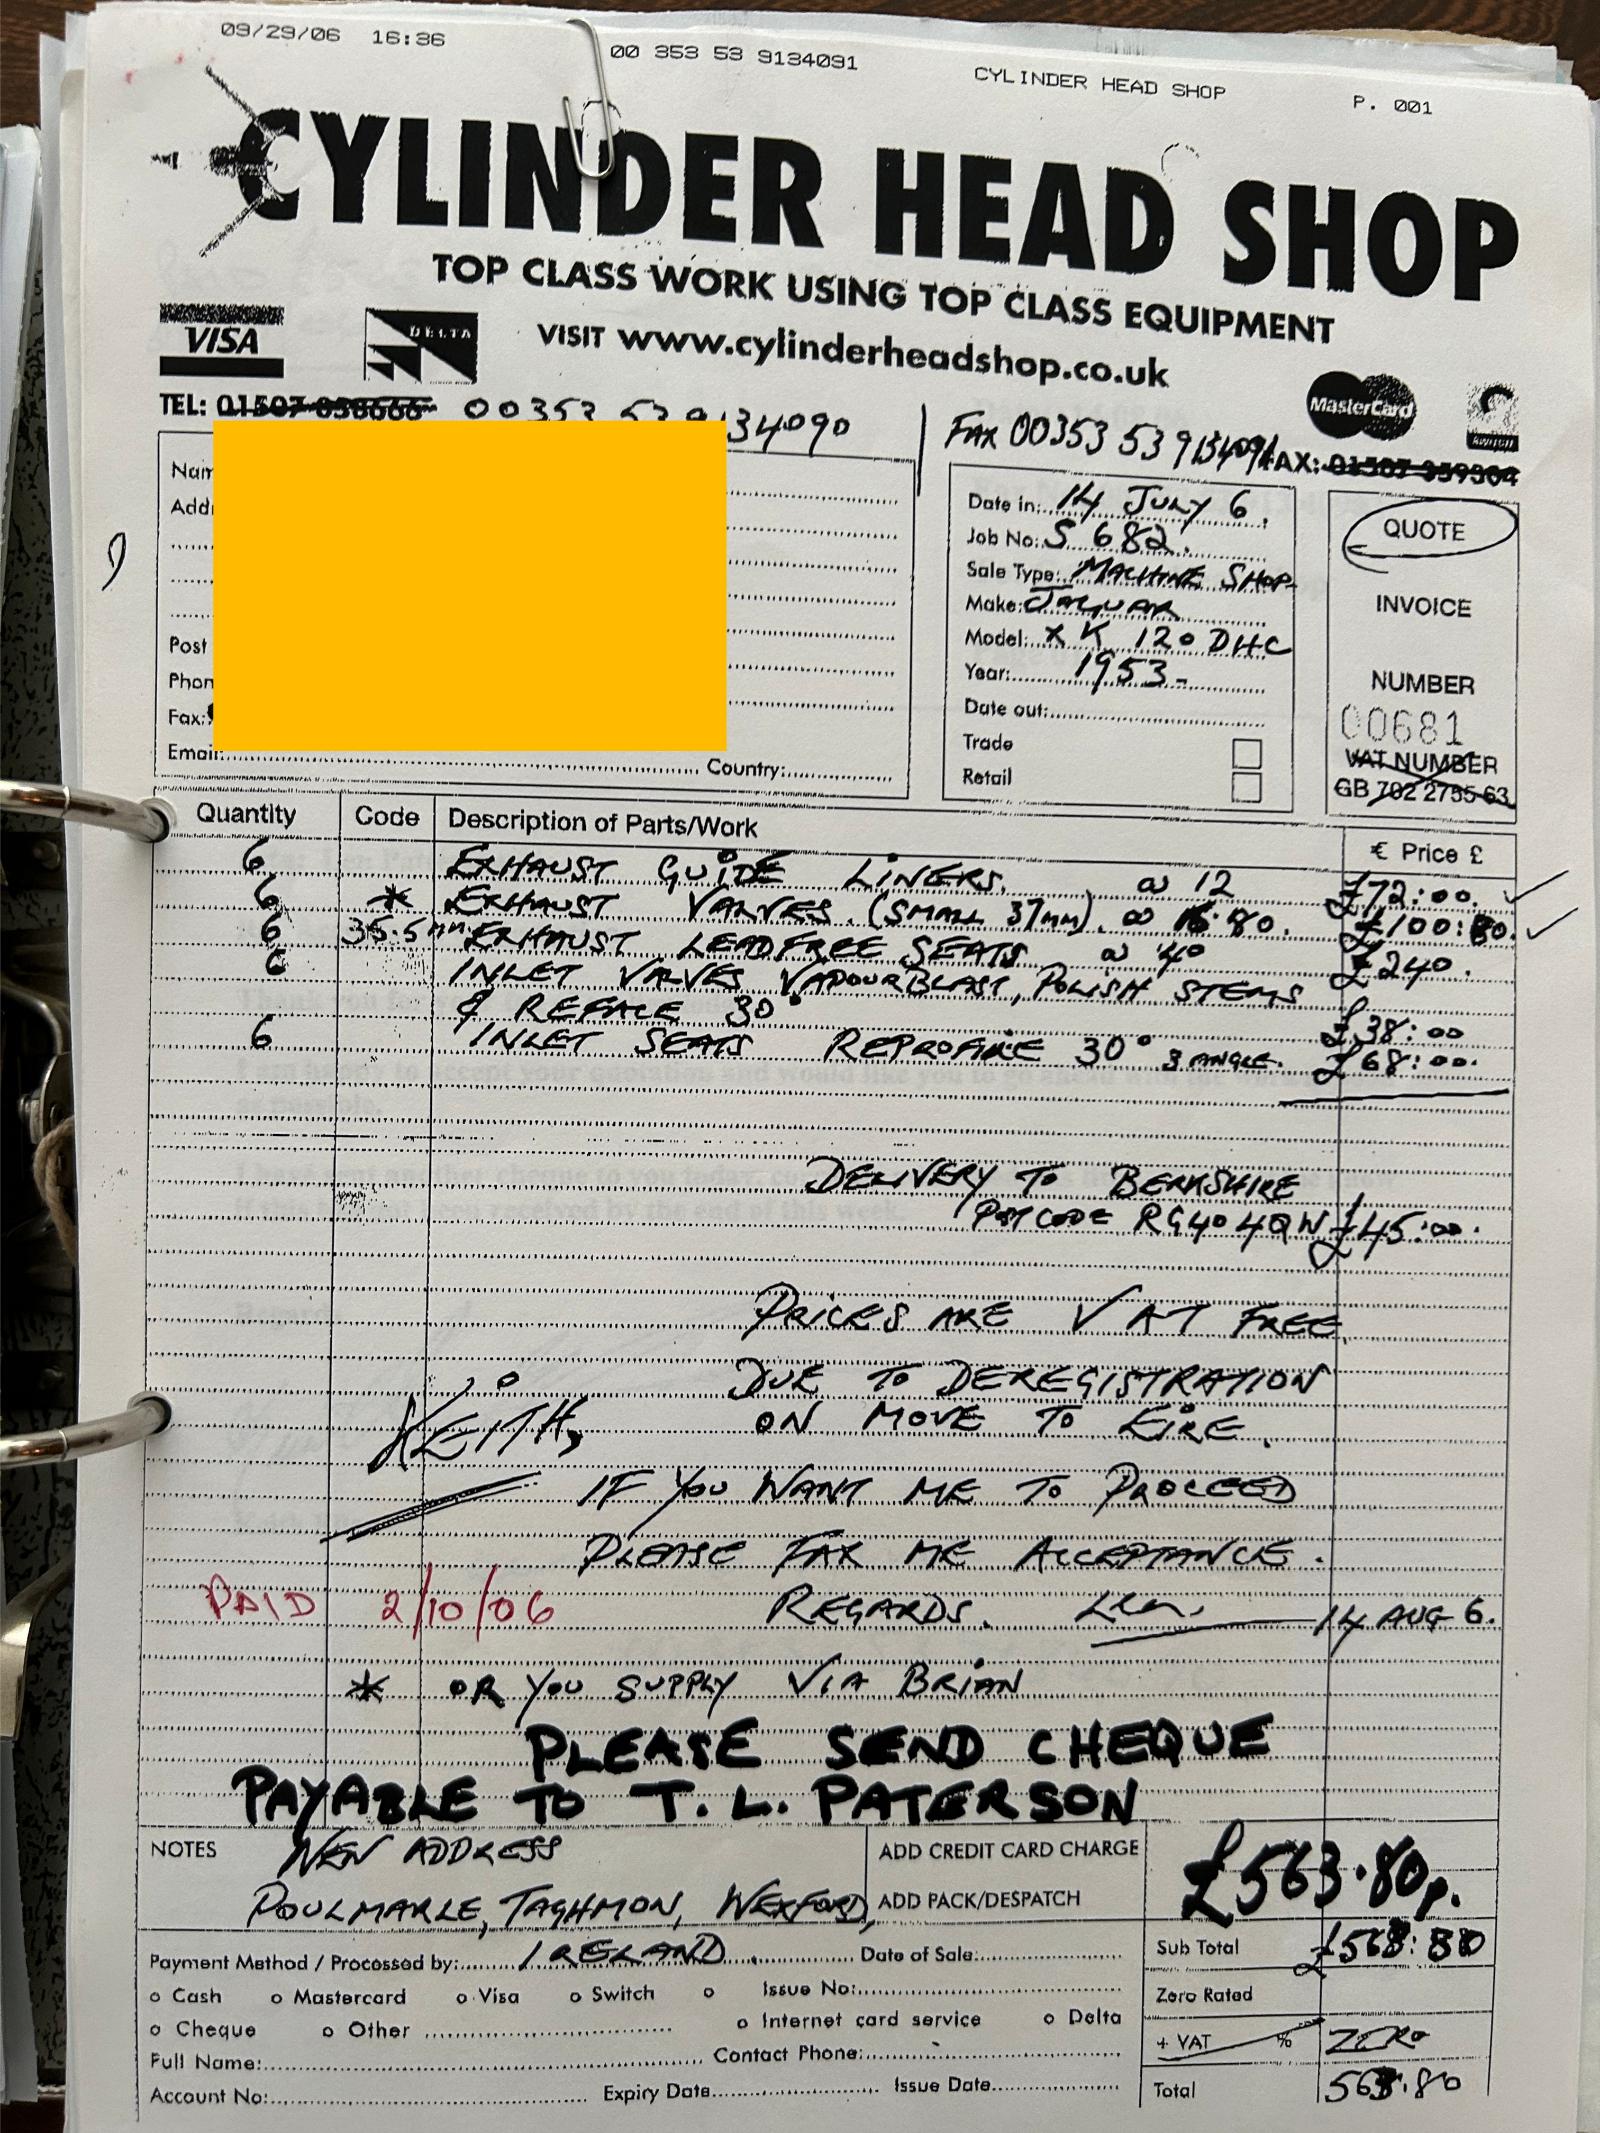 09/29/06 16:36 00 353 53 9134091 CYLINDER HEAD SHOP P. 001
CYLINDER HEAD SHOP
TOP CLASS WORK USING TOP CLASS EQUIPMENT
VISA DELTA VISIT www.cylinderheadshop.co.uk
MasterCard
TEL: 00353 53 9134090 FAX 00353 53 9134091 FAX: 01507 359304
Nam
Addr
Post
Phon
Fax:
Email: Country:
Date in: 14 JULY 6.
Job No: S 682.
Sale Type: MACHINE SHOP
Make: JAGUAR
Model: XK 120 DHC
Year: 1953-
Date out:
Trade
Retail
QUOTE
INVOICE
NUMBER
00681
VAT NUMBER
GB 702 2755 63
Quantity Code Description of Parts/Work € Price £
6 EXHAUST GUIDE LINERS. @ 12 £72:00.
6 * EXHAUST VALVES. (SMALL 37mm). @ 16.80. £100:80.
6 35.5mm EXHAUST LEADFREE SEATS @ 40 £240.
6 INLET VALVES VAPOURBLAST, POLISH STEMS
& REFACE 30° £38:00
6 INLET SEATS REPROFILE 30° 3 ANGLE. £68:00.
DELIVERY TO BERKSHIRE
POSTCODE RG40 4QW £45:00.
PRICES ARE VAT FREE
DUE TO DEREGISTRATION
ON MOVE TO EIRE.
KEITH,
IF YOU WANT ME TO PROCEED
PLEASE FAX ME ACCEPTANCE.
PAID 2/10/06 REGARDS. Len. 14 AUG 6.
* OR YOU SUPPLY VIA BRIAN
PLEASE SEND CHEQUE
PAYABLE TO T. L. PATERSON
NOTES NEW ADDRESS
POULMARLE, TAGHMON, WEXFORD,
IRELAND.
ADD CREDIT CARD CHARGE
ADD PACK/DESPATCH
£563.80p.
Payment Method / Processed by: Date of Sale:
Cash Mastercard Visa Switch Issue No:
Cheque Other Internet card service Delta
Full Name: Contact Phone:
Account No: Expiry Date Issue Date
Sub Total £563:80
Zero Rated
+ VAT % ZERO
Total 563.80